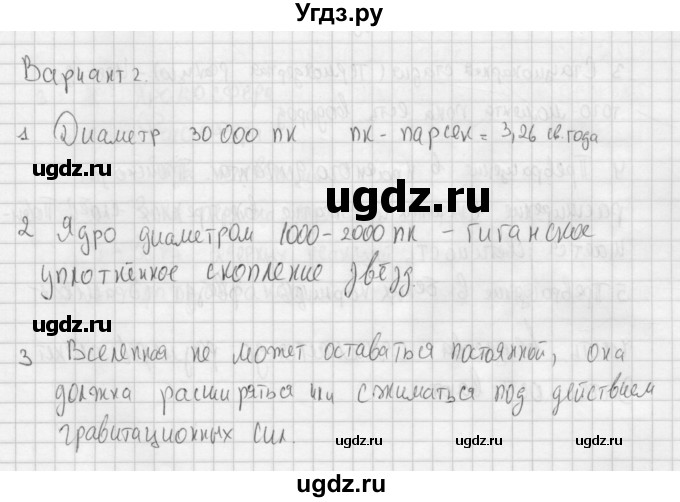 Угдз.ру
Вариант 2.
1 Диаметр 30 000 пк пк - парсек = 3,26 св. года
ugdz.ru
ugdz.ru
2 Ядро диаметром 1000-2000 пк - гиганское
уплотнённое скопление звёзд.
ugdz.ru
3 Вселенная не может оставаться постоянной, она
должна расширяться или сжиматься под действием
гравитационных сил.
ugdz.ru ugdz.ru ugdz.ru
ugdz.ru